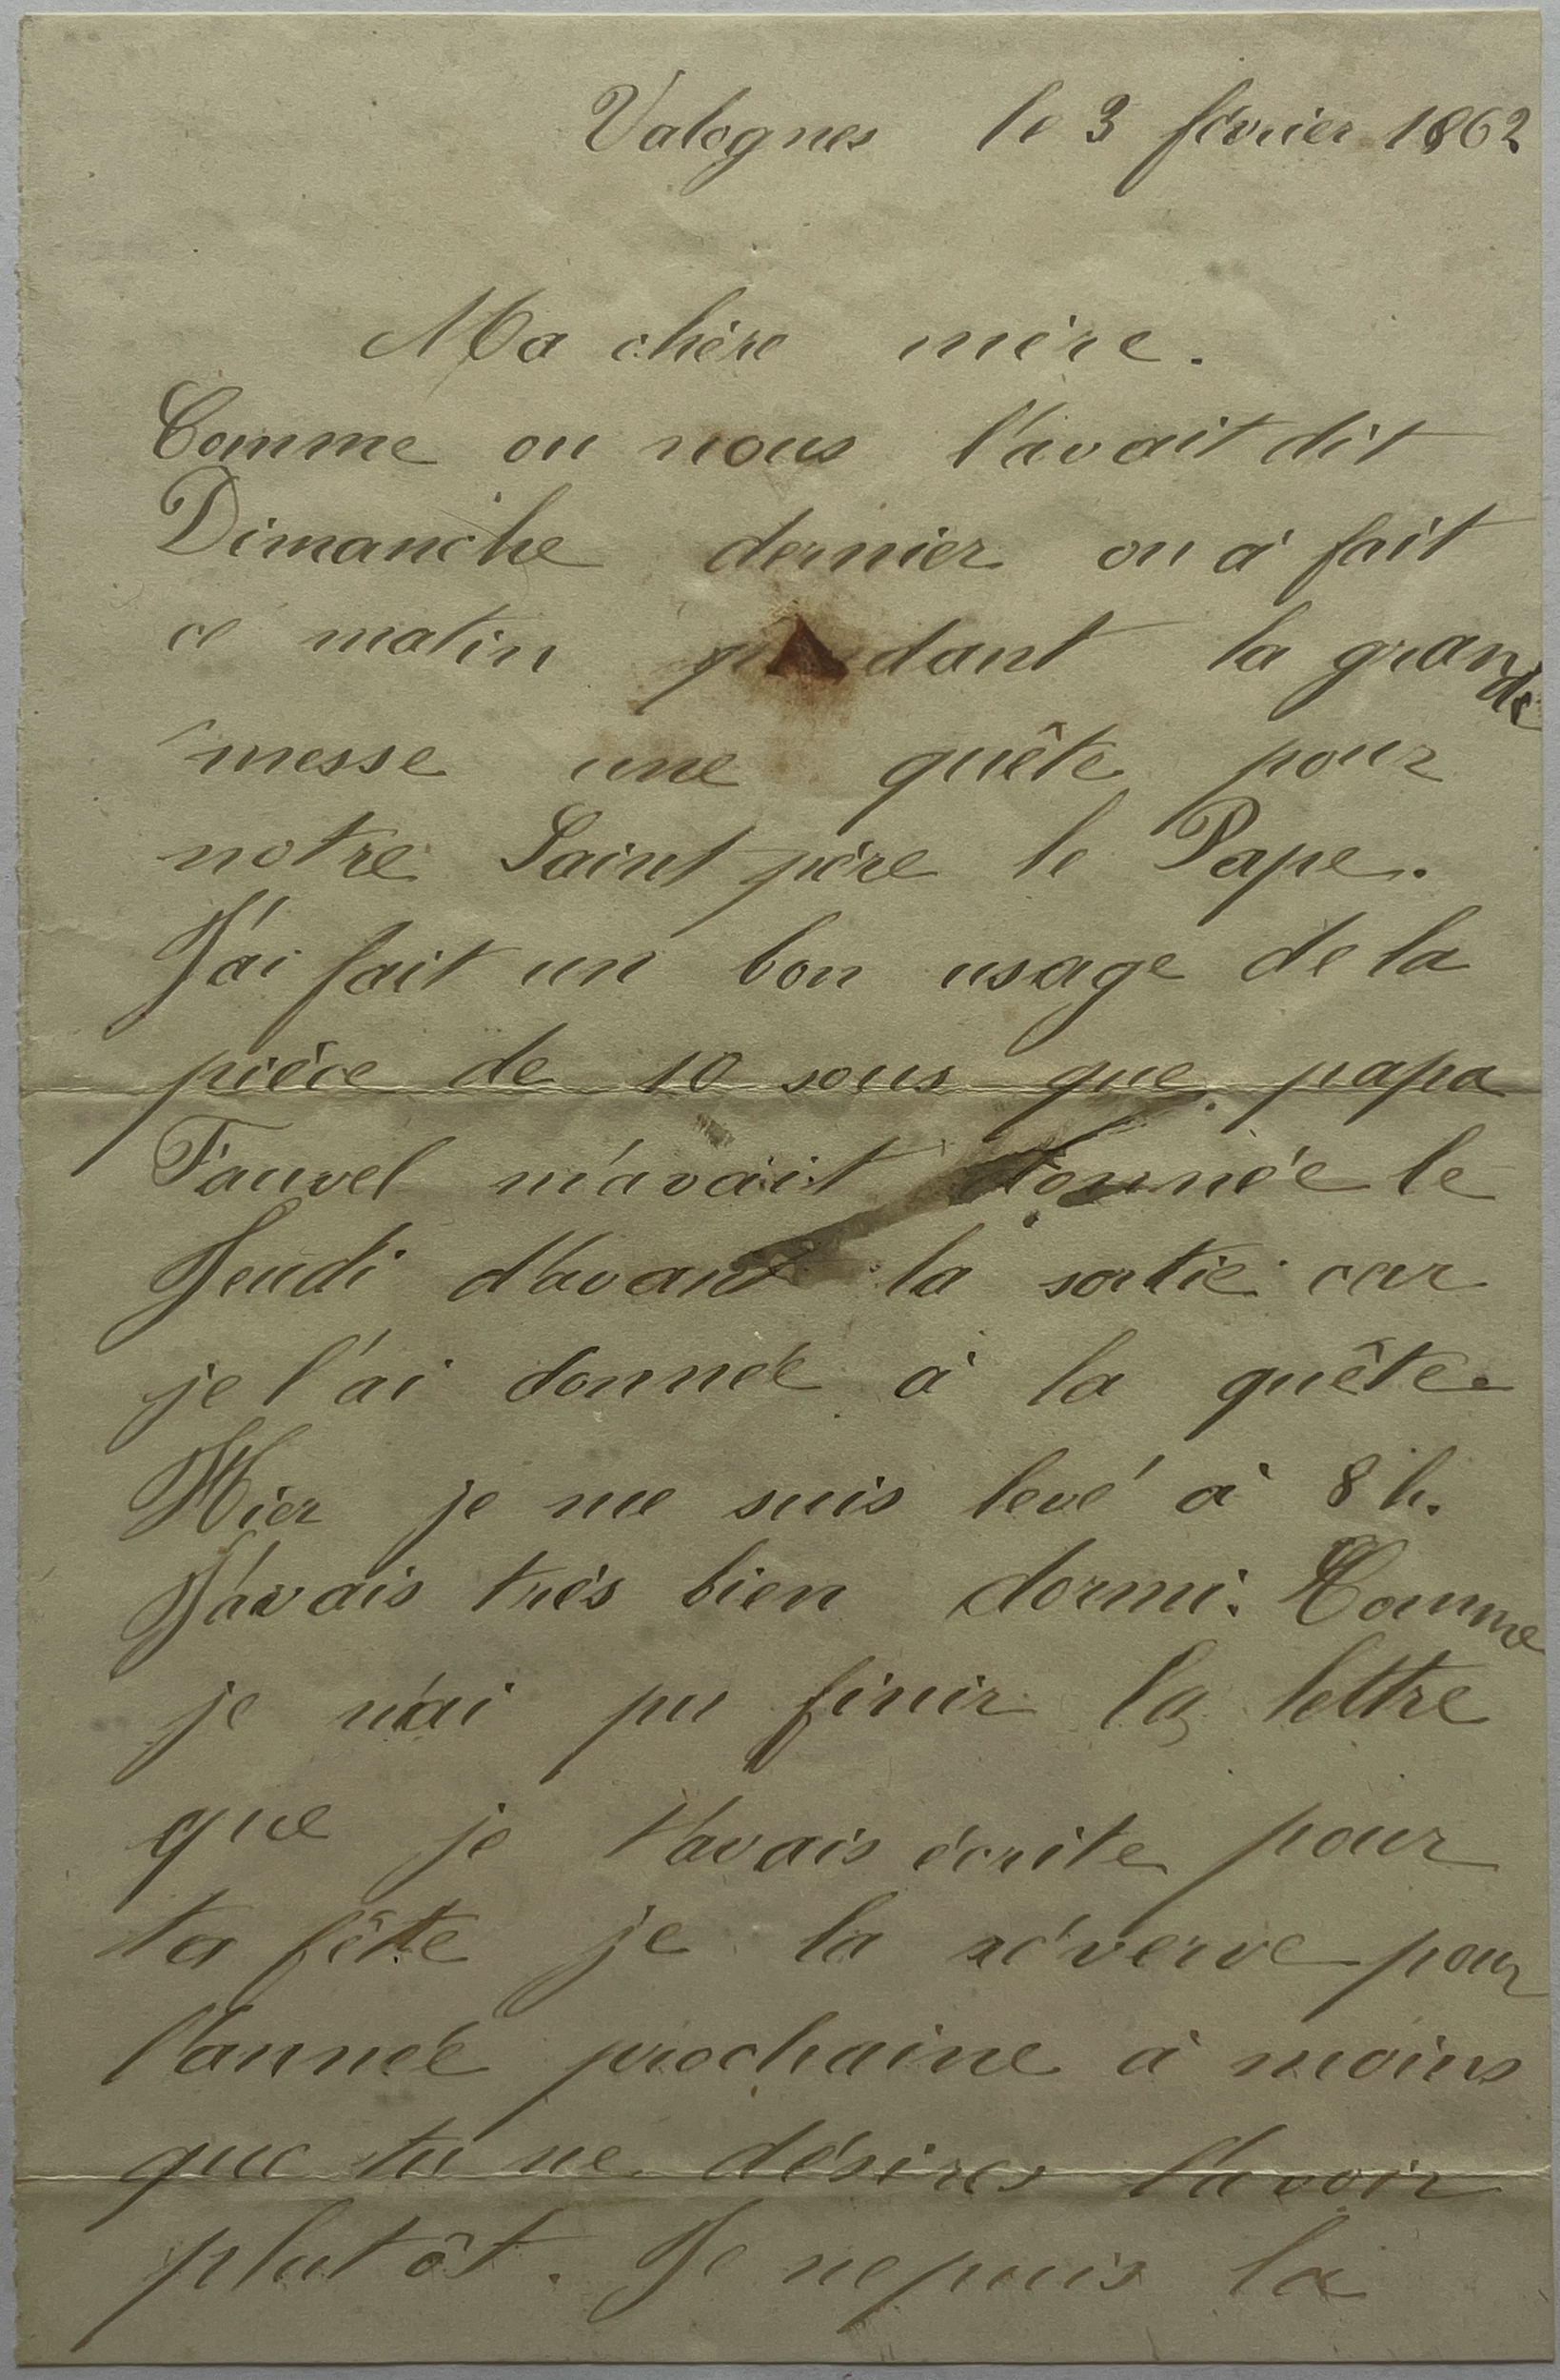 Valognes le 3 février 1862
Ma chère mère.
Comme on nous l'avait dit
Dimanche dernier on à fait
ce matin pendant la grande
messe une quête pour
notre Saint père le Pape.
J'ai fait un bon usage de la
pièce de 10 sous que papa
Fauvel m'avait donnée le
Jeudi d'avant la sortie car
je l'ai donnée à la quête.
Hier je me suis levé à 8 h.
J'avais très bien dormi. Comme
je n'ai pu finir la lettre
que je t'avais écrite pour
ta fête je la réverve pour
l'année prochaine à moins
que tu ne désires l'avoir
plutôt. Je ne puis la